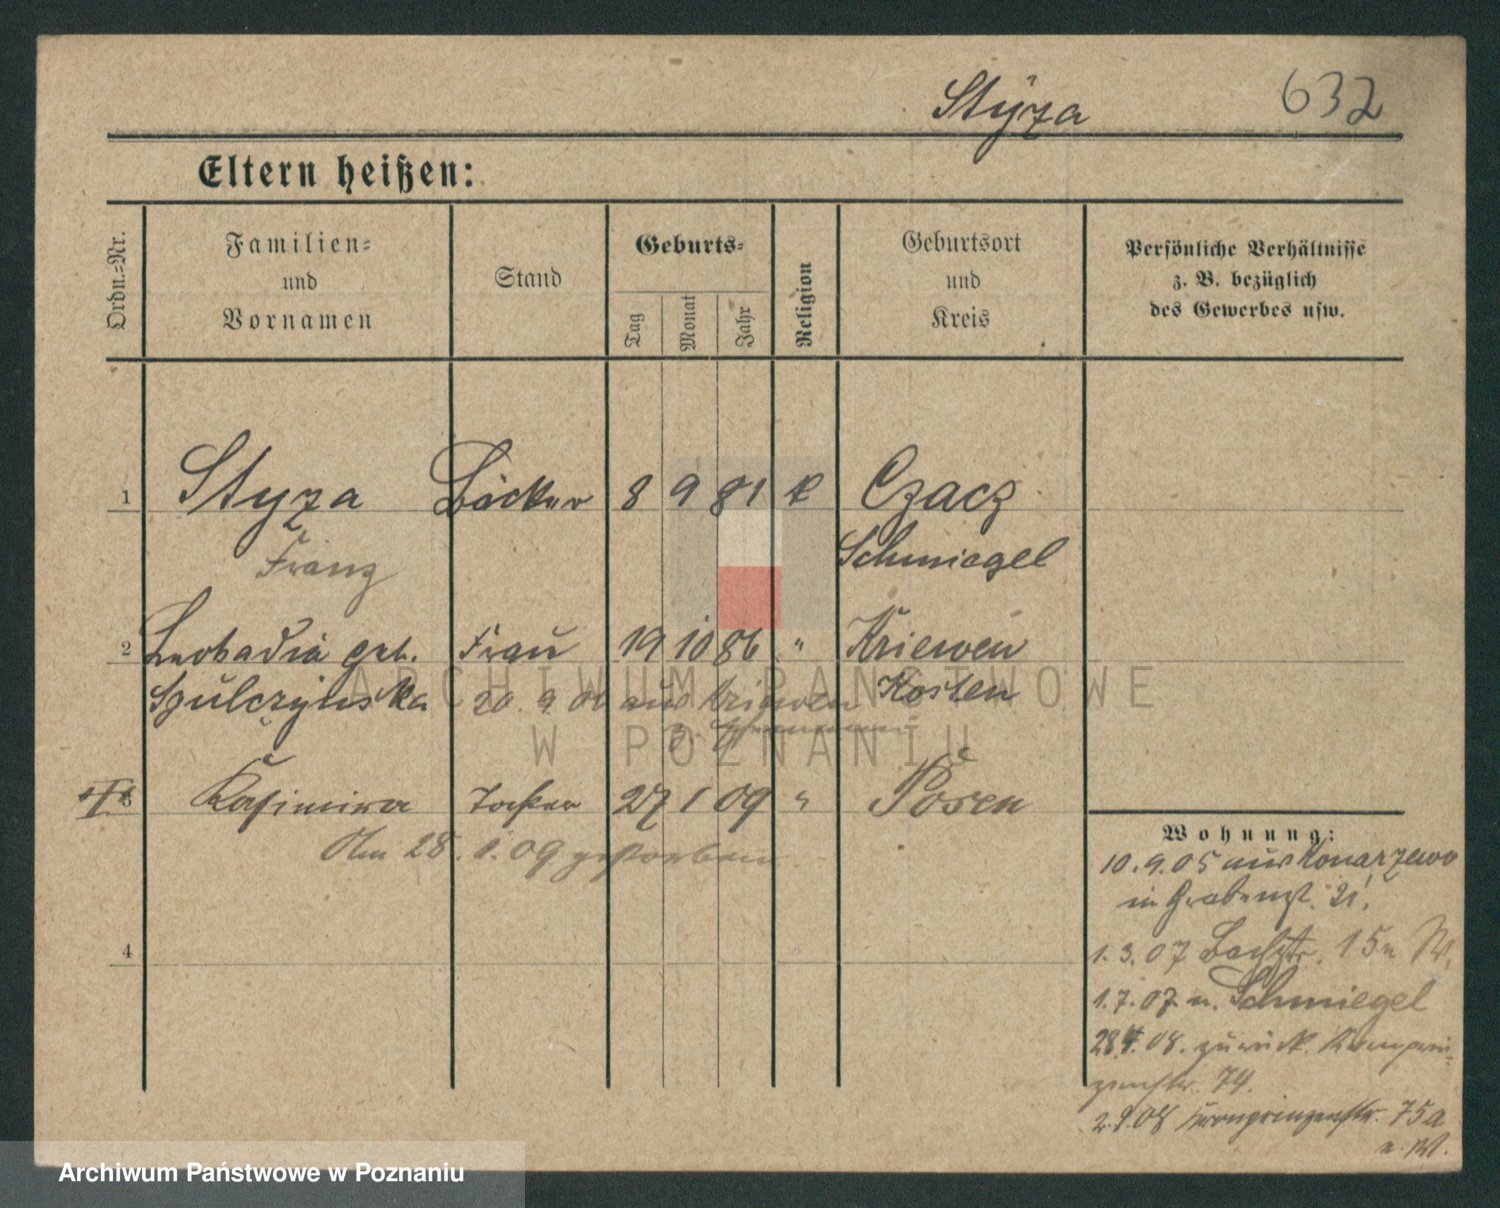 Styza 632
Eltern heißen:
Ordn.=Nr. Familien= und Vornamen Stand Geburts= Tag Monat Jahr Religion Geburtsort und Kreis Persönliche Verhältnisse z. B. bezüglich des Gewerbes usw.
1 Styza Bäcker 8 9 81 k Czacz
Franz Schmiegel
2 Leokadia geb. Frau 19 10 86 " Kriewen
Szulczynska 20. 9. 06 aus Kriewen Kosten
3 Kasimira Tochter 27 1 09 " Posen
Am 28. 1. 09 gestorben
4
Wohnung:
10. 9. 05 aus Konarzewo
in Grabenst. 21.
1. 3. 07 Bachstr. 15
1. 7. 07. n. Schmiegel
28. 08. zurück. Kronprin=
zenstr. 74.
08 Kronprinzenstr. 75a
ARCHIWUM PAŃSTWOWE
W POZNANIU
Archiwum Państwowe w Poznaniu